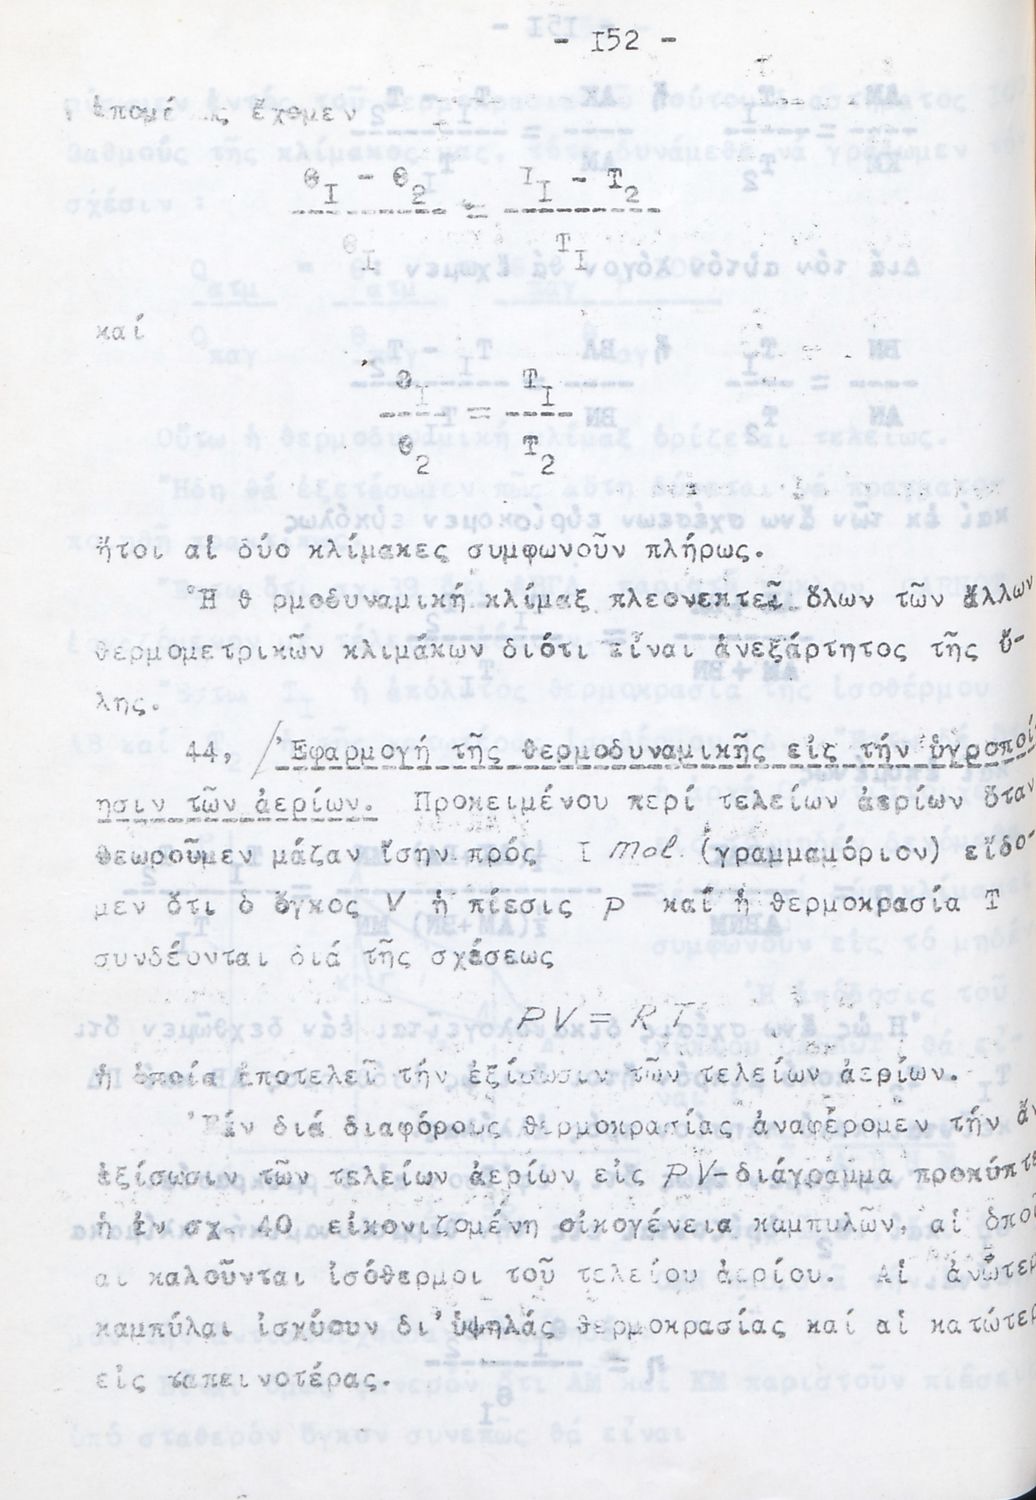 - I52 -
ἔχομεν
Θ_I - Θ_2 = T_I - T_2
Θ_I T_I
καί
Θ_I = T_I
Θ_2 T_2
ἤτοι αἱ δύο κλίμακες συμφωνοῦν πλήρως.
Ἡ θ ρμοδυναμική κλίμαξ πλεονεκτεῖ ὅλων τῶν ἄλλων
θερμομετρικῶν κλιμάκων διότι εἶναι ἀνεξάρτητος τῆς ὕ-
λης.
44, / Ἐφαρμογή τῆς θερμοδυναμικῆς εἰς τήν ὑγροποί
ησιν τῶν ἀερίων. Προκειμένου περί τελείων ἀερίων ὅταν
θεωροῦμεν μάζαν ἴσην πρός I mol (γραμμαμόριον) εἴδο-
μεν ὅτι ὁ ὄγκος V ἡ πίεσις p καί ἡ θερμοκρασία T
συνδέονται διά τῆς σχέσεως
PV = RT
ἡ ὁποία ἀποτελεῖ τήν ἐξίσωσιν τῶν τελείων ἀερίων.
Ἐάν διά διαφόρους θερμοκρασίας ἀναφέρομεν τήν ἄν
ἐξίσωσιν τῶν τελείων ἀερίων εἰς PV-διάγραμμα προκύπτε
ἡ ἐν σχ. 40 εἰκονιζομένη οἰκογένεια καμπυλῶν, αἱ ὁποῖ
αι καλοῦνται ἰσόθερμοι τοῦ τελείου ἀερίου. Αἱ ἀνώτερ
καμπύλαι ἰσχύουν δι' ὑψηλάς θερμοκρασίας καί αἱ κατώτερ
εἰς ταπεινοτέρας.